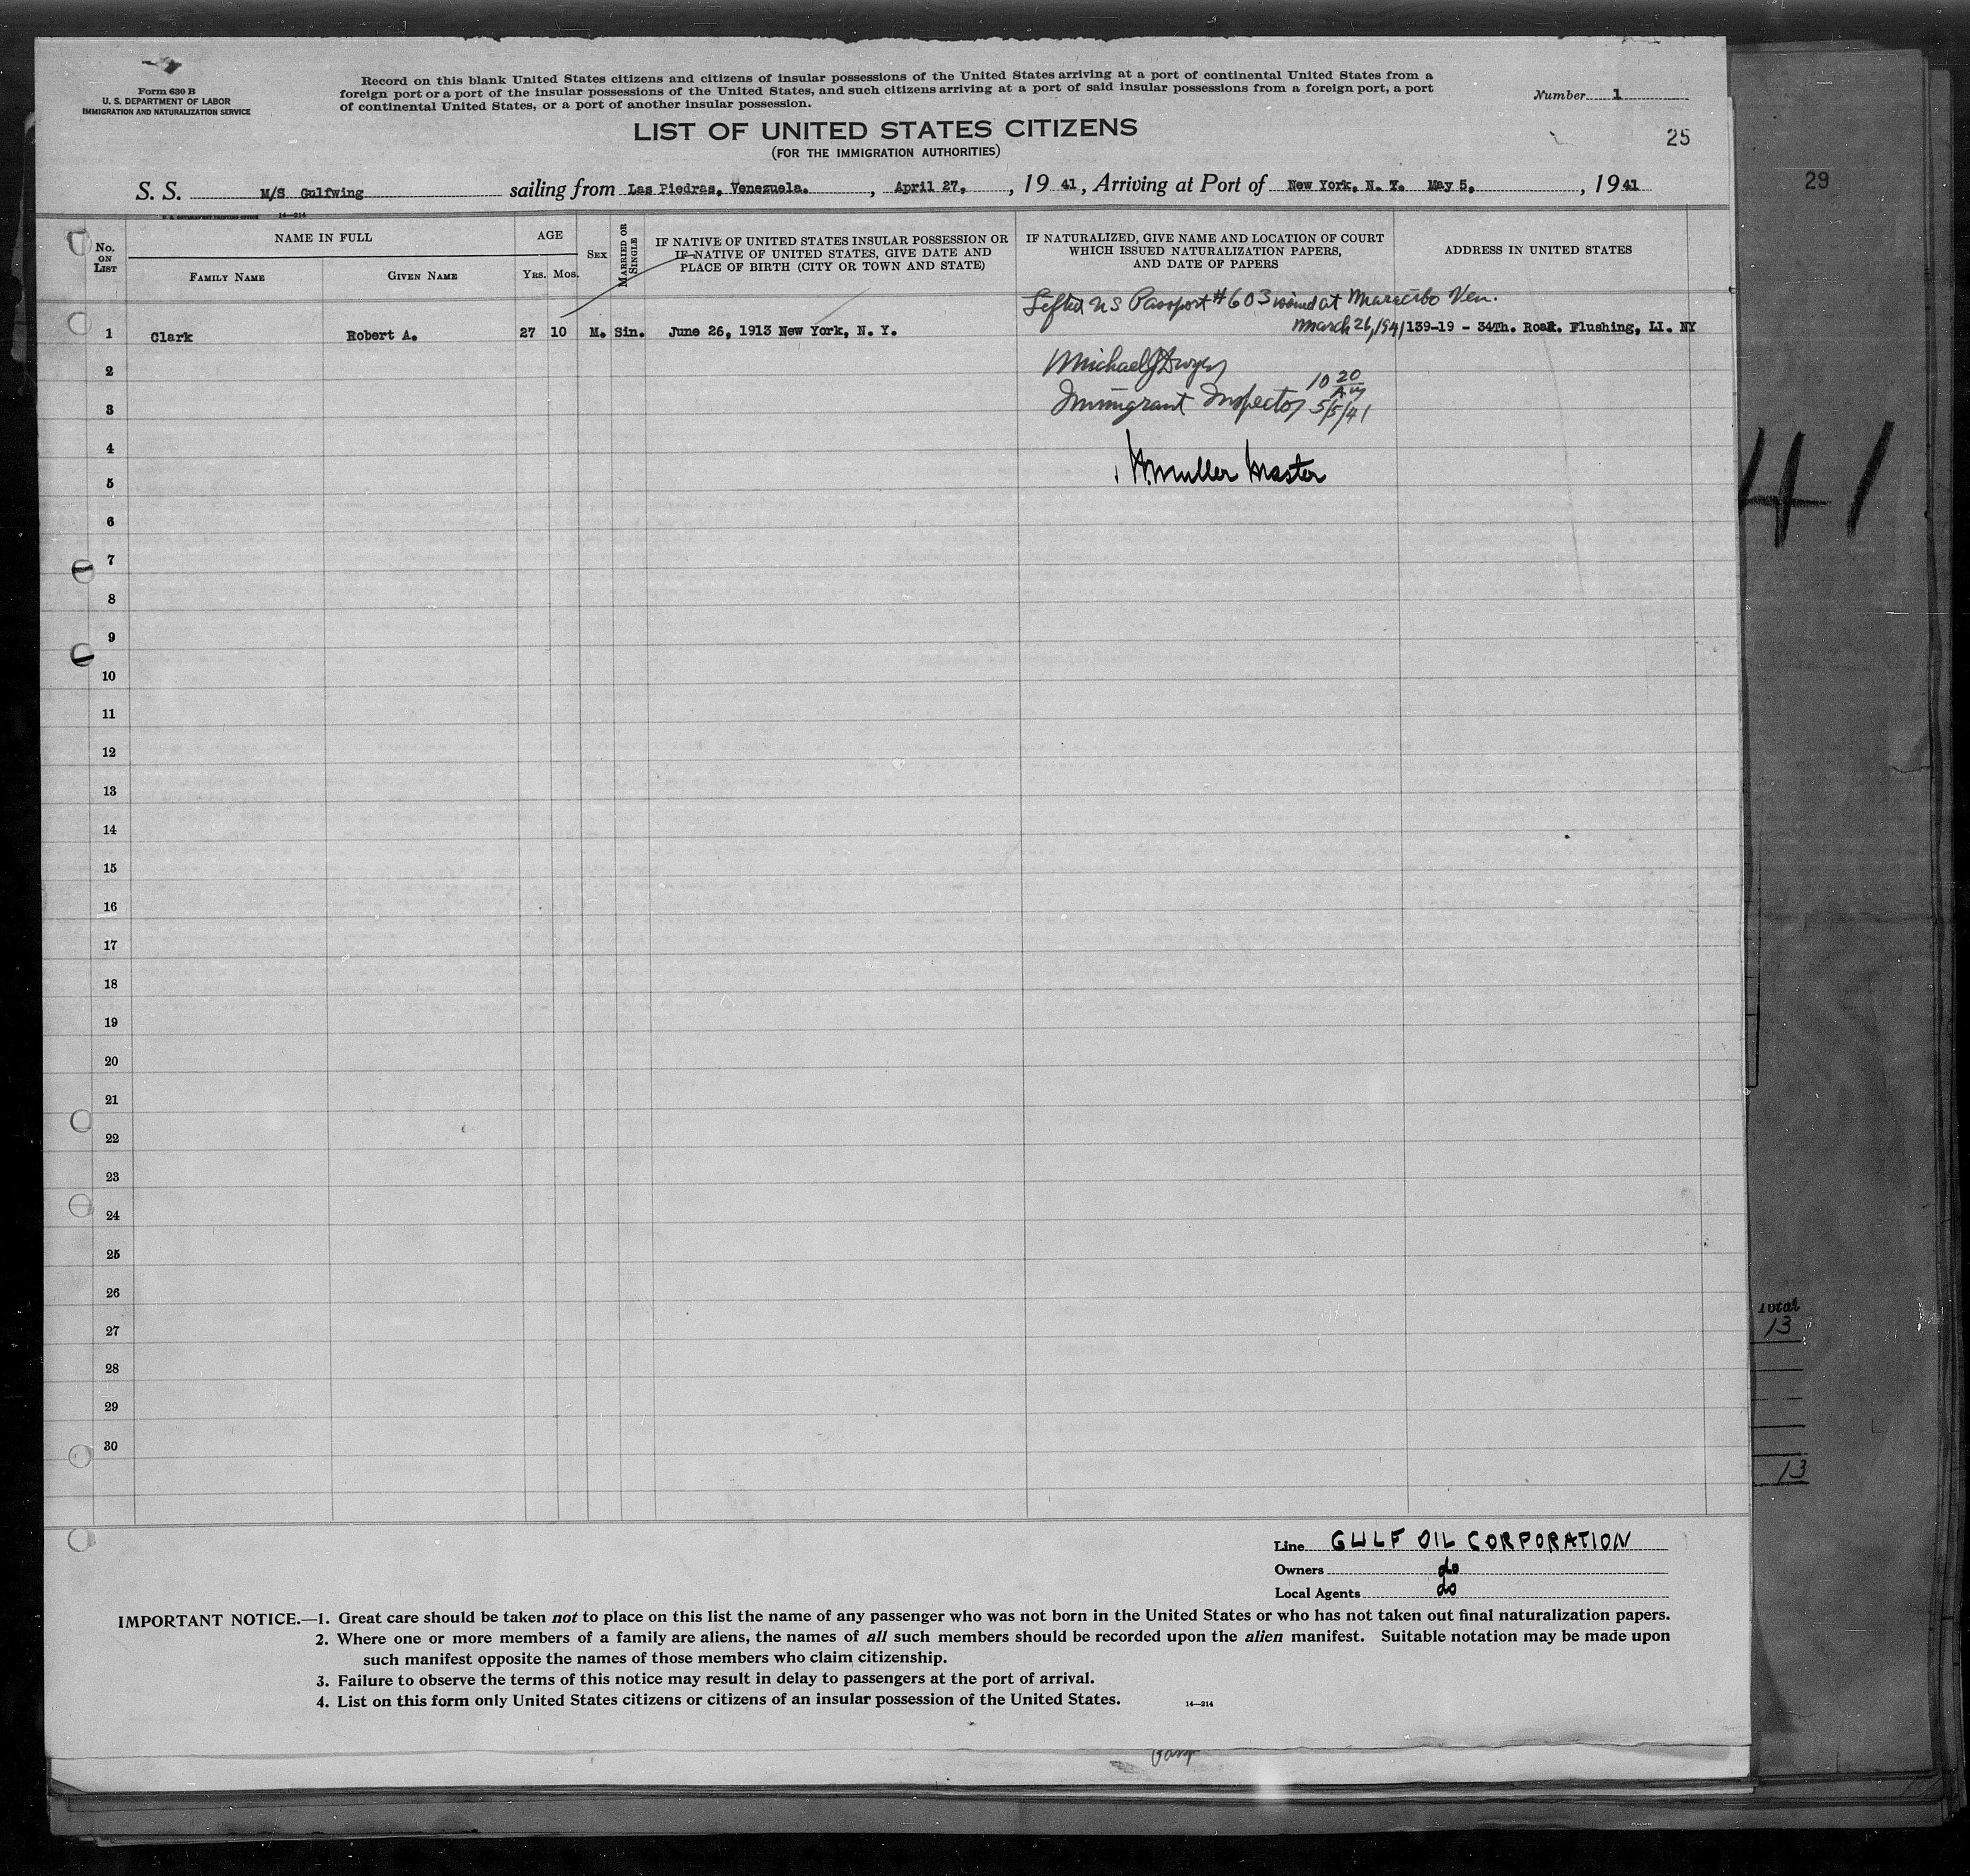 Form 630 B
U. S. DEPARTMENT OF LABOR
IMMIGRATION AND NATURALIZATION SERVICE
Record on this blank United States citizens and citizens of insular possessions of the United States arriving at a port of continental United States from a
foreign port or a port of the insular possessions of the United States, and such citizens arriving at a port of said insular possessions from a foreign port, a port
of continental United States, or a port of another insular possession.
Number 1
LIST OF UNITED STATES CITIZENS
(FOR THE IMMIGRATION AUTHORITIES)
25
29
S. S. M/S Gulfwing sailing from Las Piedras, Venezuela. , April 27, , 19 41, Arriving at Port of New York, N. Y. May 5, , 1941
14—214
No. ON LIST
NAME IN FULL
FAMILY NAME
GIVEN NAME
AGE
YRS. MOS.
SEX
MARRIED OR SINGLE
IF NATIVE OF UNITED STATES INSULAR POSSESSION OR
IF NATIVE OF UNITED STATES, GIVE DATE AND
PLACE OF BIRTH (CITY OR TOWN AND STATE)
IF NATURALIZED, GIVE NAME AND LOCATION OF COURT
WHICH ISSUED NATURALIZATION PAPERS,
AND DATE OF PAPERS
ADDRESS IN UNITED STATES
Lifted US Passport #603 issued at Maracaibo Ven.
March 26, 1941
1 Clark Robert A. 27 10 M. Sin. June 26, 1913 New York, N. Y. 139-19 - 34Th. Road. Flushing, LI. NY
2 Michael J Dwyer
3 Immigrant Inspector 10 20 AM 5/5/41
4
H. Muller Master
5
6
7
8
9
10
11
12
13
14
15
16
17
18
19
20
21
22
23
24
25
26
27
28
29
30
41
Total
13
13
Line GULF OIL CORPORATION
Owners do
Local Agents do
IMPORTANT NOTICE.—1. Great care should be taken not to place on this list the name of any passenger who was not born in the United States or who has not taken out final naturalization papers.
2. Where one or more members of a family are aliens, the names of all such members should be recorded upon the alien manifest. Suitable notation may be made upon
such manifest opposite the names of those members who claim citizenship.
3. Failure to observe the terms of this notice may result in delay to passengers at the port of arrival.
4. List on this form only United States citizens or citizens of an insular possession of the United States. 14—214